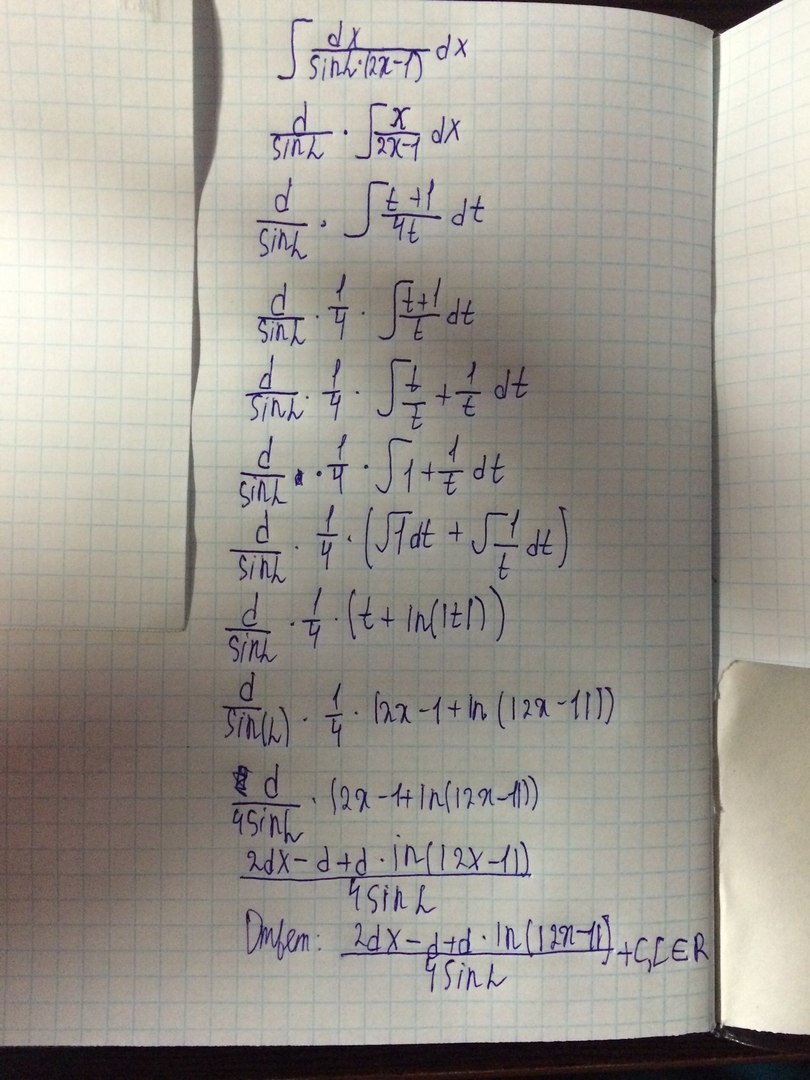 ∫ dx/(sinL·(2x-1)) dx
d/sinL · ∫ x/(2x-1) dx
d/sinL · ∫ (t+1)/4t dt
d/sinL · 1/4 · ∫ (t+1)/t dt
d/sinL · 1/4 · ∫ t/t + 1/t dt
d/sinL · · 1/4 · ∫ 1 + 1/t dt
d/sinL · 1/4 · (∫1dt + ∫1/t dt)
d/sinL · 1/4 · (t + ln(|t|))
d/sin(L) · 1/4 · (2x-1+ln(|2x-1|))
d/4sinL · (2x-1+ln(|2x-1|))
(2dx-d+d·ln(|2x-1|))/4sinL
Ответ: (2dx-d+d·ln(|2x-1|))/4sinL +C, C∈R